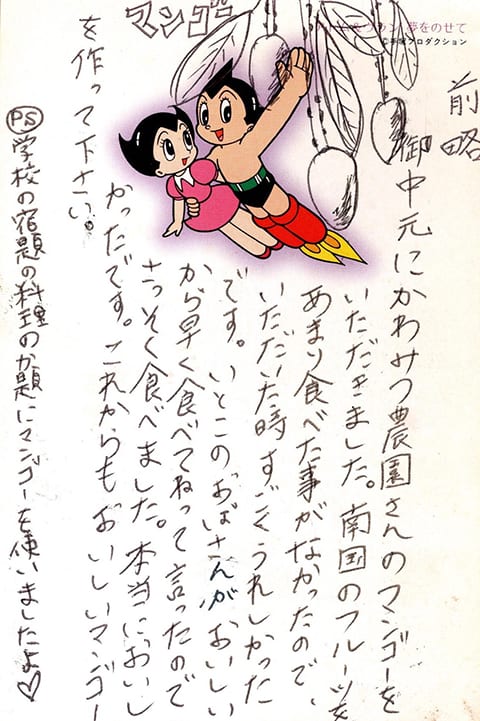 マンゴー
夢をのせて
©手塚プロダクション
前略
御中元にかわみつ農園さんのマンゴーを
いただきました。南国のフルーツを
あまり食べた事がなかったので、
いただいた時すごくうれしかった
です。いとこのおばさんがおいしい
から早く食べてねって言ったので
さっそく食べました。本当においし
かったです。これからもおいしいマンゴー
を作って下さい。
PS 学校の宿題の料理のか題にマンゴーを使いましたよ♡